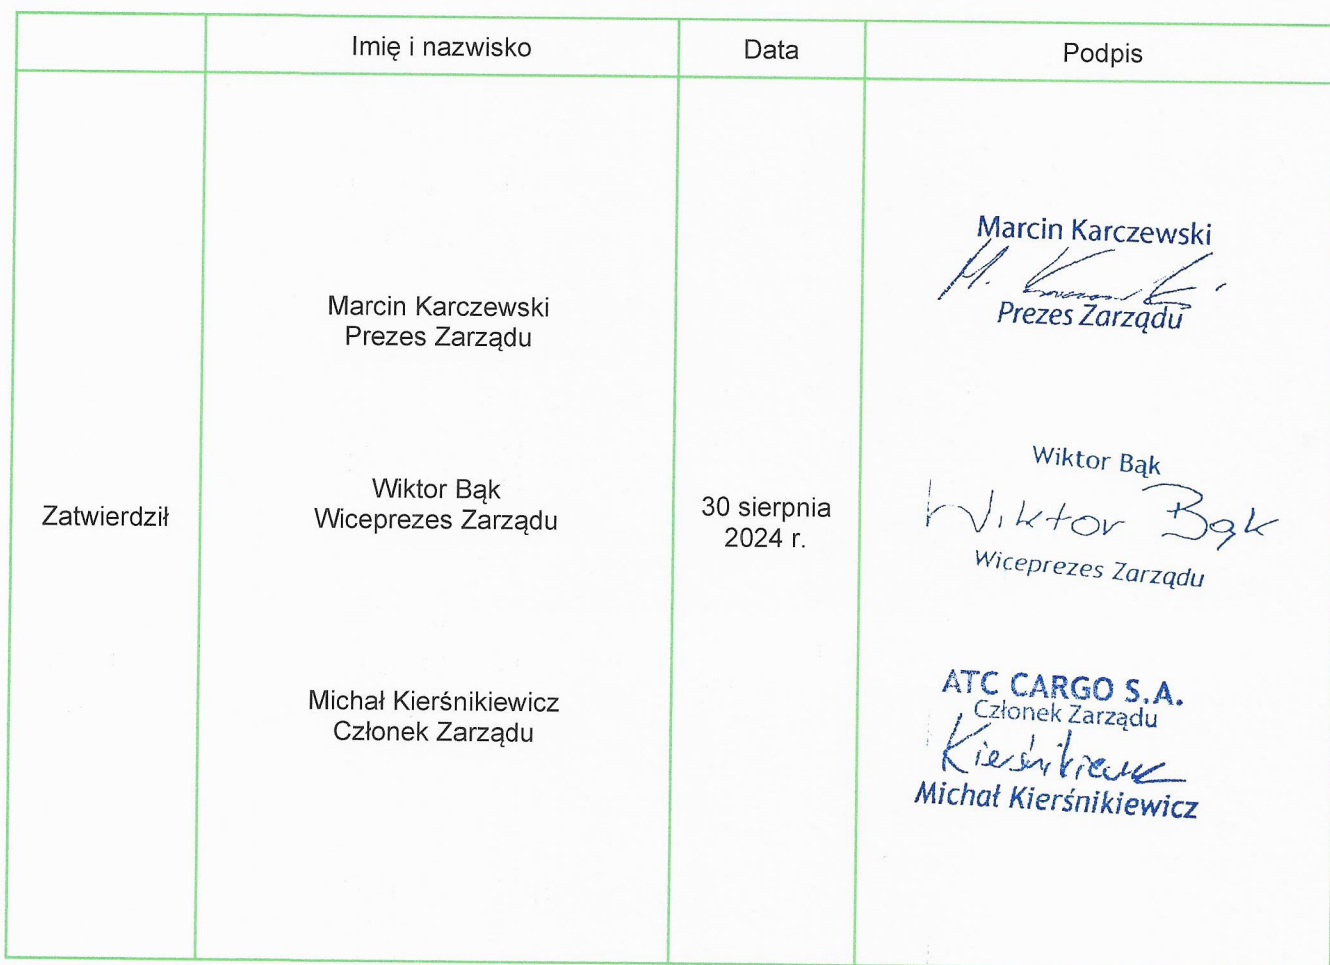 Imię i nazwisko
Data
Podpis
Zatwierdził
Marcin Karczewski
Prezes Zarządu
Wiktor Bąk
Wiceprezes Zarządu
Michał Kierśnikiewicz
Członek Zarządu
30 sierpnia
2024 r.
Marcin Karczewski
Prezes Zarządu
Wiktor Bąk
Wiktor Bąk
Wiceprezes Zarządu
ATC CARGO S.A.
Członek Zarządu
Michał Kierśnikiewicz